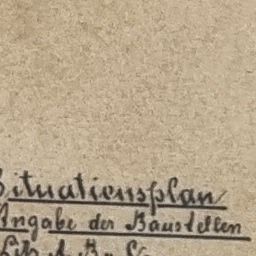 Situationsplan
Angabe der Baustellen
Lit. A. B.